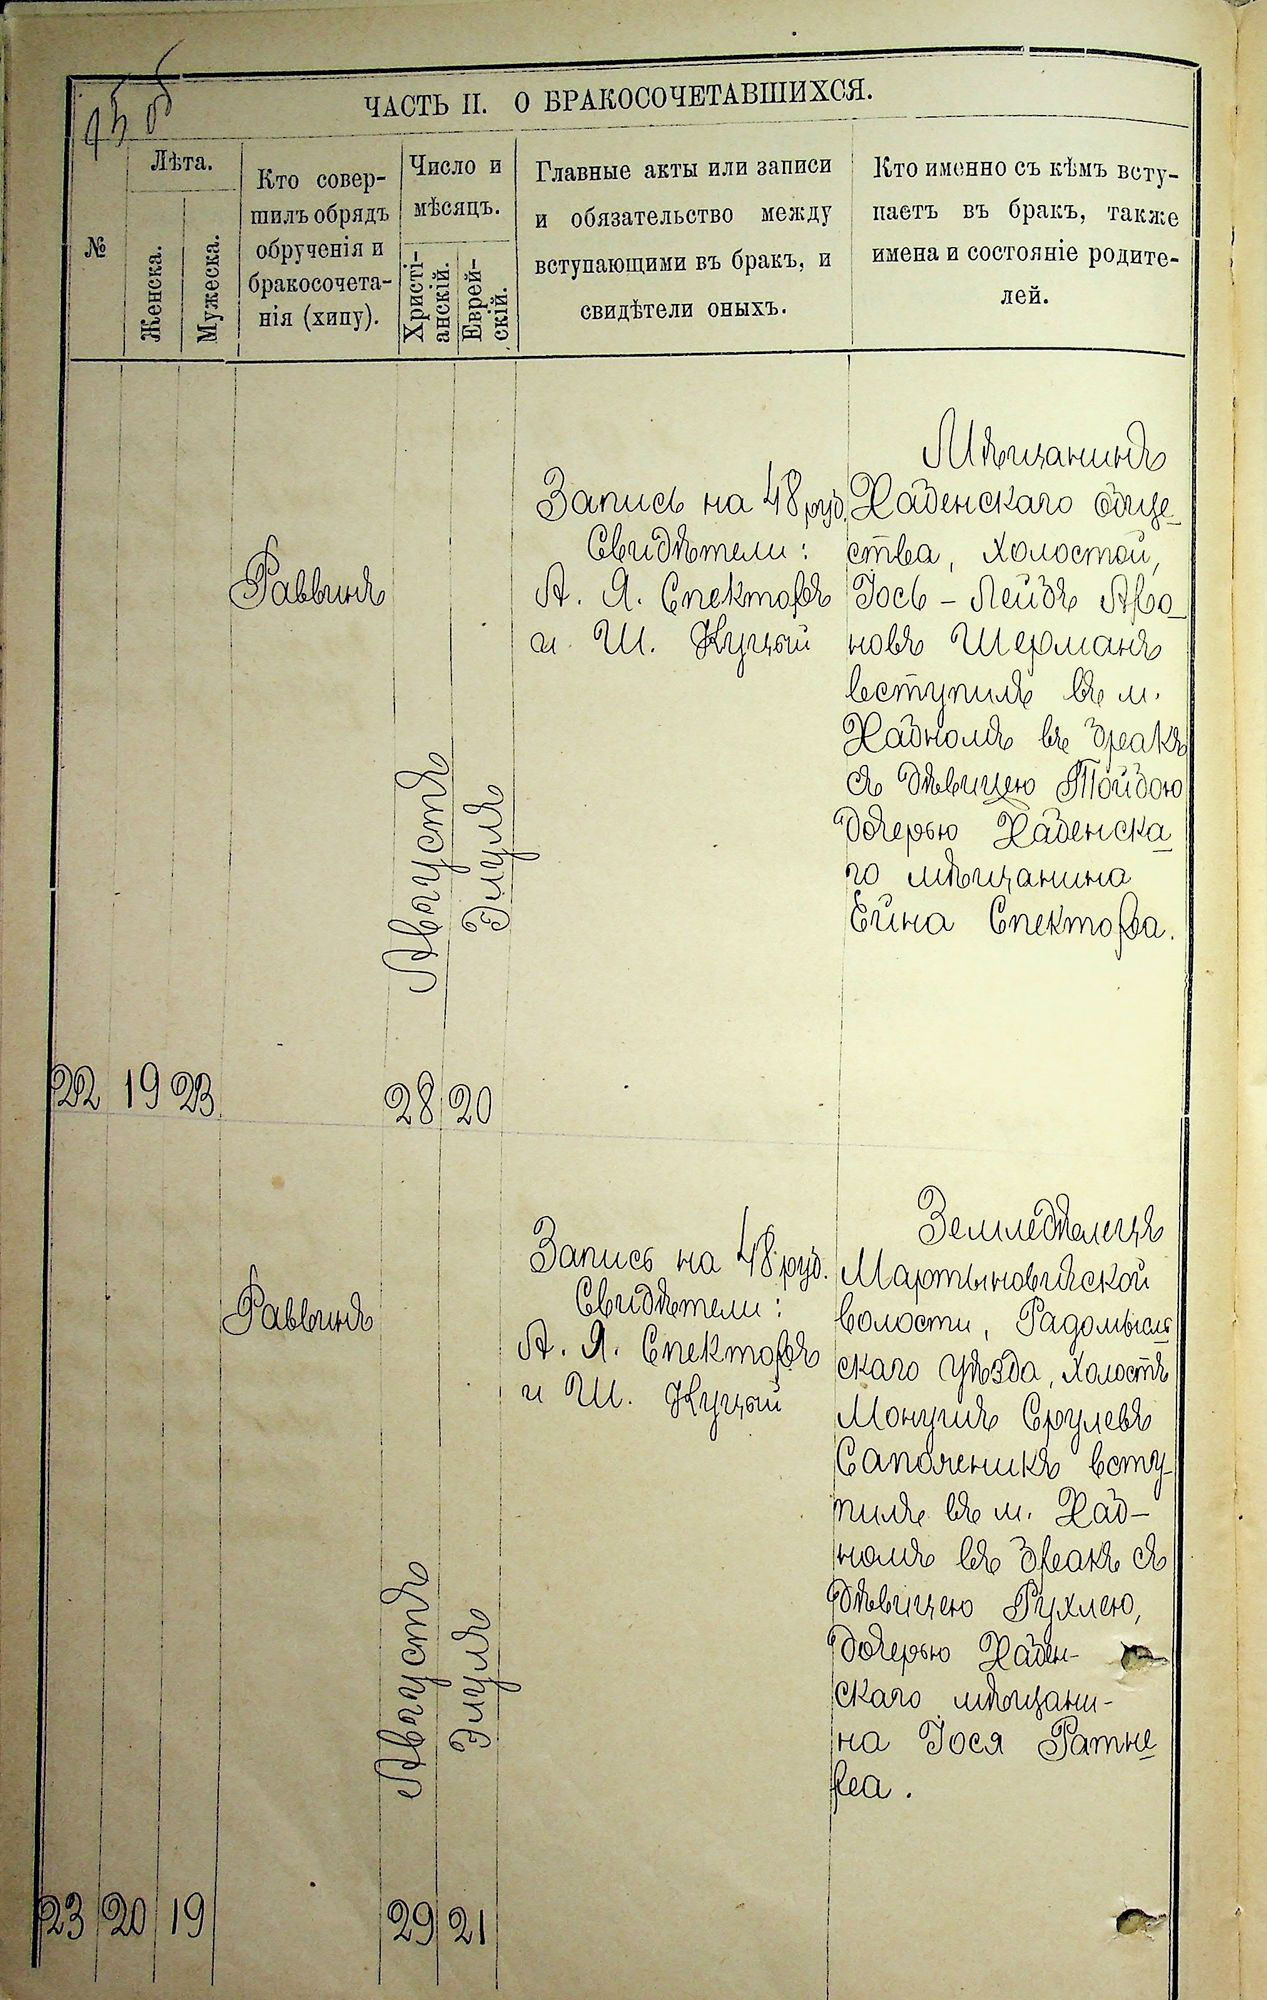 95 об
ЧАСТЬ II. О БРАКОСОЧЕТАВШИХСЯ.
№
Лѣта.
Женска.
Мужеска.
Кто совер-
шилъ обрядъ
обрученія и
бракосочета-
нія (хипу).
Число и
мѣсяцъ.
Христі-
анскій.
Еврей-
скій.
Главные акты или записи
и обязательство между
вступающими въ бракъ, и
свидѣтели оныхъ.
Кто именно съ кѣмъ всту-
паетъ въ бракъ, также
имена и состояніе родите-
лей.
22
19
23
Раввинъ
Августъ
28
Элулъ
20
Запись на 48 руб.
Свидѣтели:
А. Я. Спекторъ
и Ш. Куцый
Мѣщанинъ
Хабенскаго обще-
ства, холостой,
Іось-Лейбъ Аро-
новъ Шерманъ
вступилъ въ м.
Хабномъ въ бракъ
съ дѣвицею Тойбою
дочерью Хабенска-
го мѣщанина
Ейна Спектора.
23
20
19
Раввинъ
Августъ
29
Элулъ
21
Запись на 48 руб.
Свидѣтели:
А. Я. Спекторъ
и Ш. Куцый
Земледѣлецъ
Мартыновичской
волости, Радомысль-
скаго уѣзда, холостъ
Монушъ Срулевъ
Сапожникъ всту-
пилъ въ м. Хаб-
номъ въ бракъ съ
дѣвицею Рухлею,
дочерью Хабен-
скаго мѣщани-
на Іося Ратне-
ра.